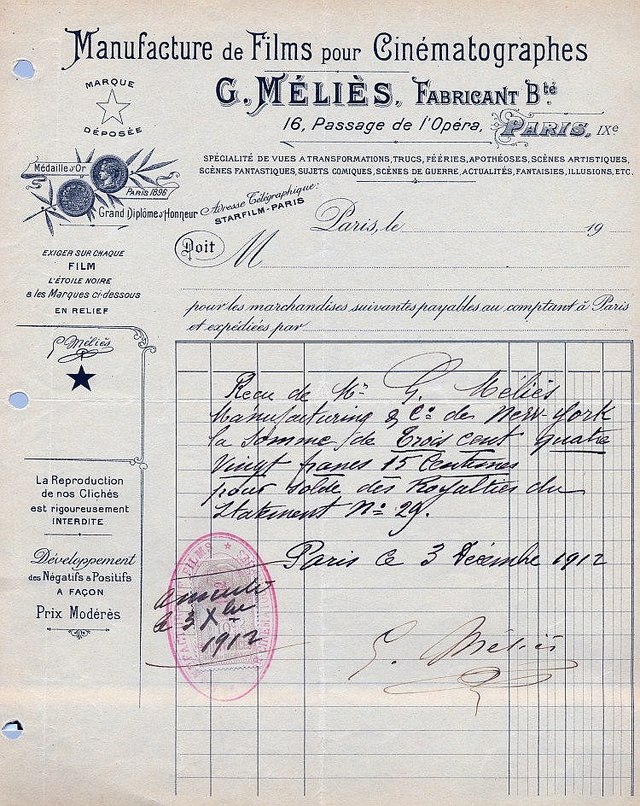 Manufacture de Films pour Cinématographes
G. MÉLIÈS, FABRICANT Bté.
16, Passage de l'Opéra, PARIS, IXe
MARQUE
DÉPOSÉE
SPÉCIALITÉ DE VUES A TRANSFORMATIONS, TRUCS, FÉÉRIES, APOTHÉOSES, SCÈNES ARTISTIQUES,
SCÈNES FANTASTIQUES, SUJETS COMIQUES, SCÈNES DE GUERRE, ACTUALITÉS, FANTAISIES, ILLUSIONS, ETC.
Médaille d'Or
PARIS 1896
Grand Diplôme d'Honneur
Adresse Télégraphique:
STARFILM-PARIS
Paris, le 19
Doit M
EXIGER SUR CHAQUE
FILM
L'ÉTOILE NOIRE
& les Marques ci-dessous
EN RELIEF
pour les marchandises suivantes payables au comptant à Paris
et expédiées par
G. Méliès
Recu de Mr. G. Méliès
Manufacturing & Co. de New-York
la somme de Trois cent quatre
vingt francs 15 Centimes
pour solde des Royalties du
Statement No. 29.
Paris le 3 Décembre 1912
La Reproduction
de nos Clichés
est rigoureusement
INTERDITE
Développement
des Négatifs & Positifs
A FAÇON
Prix Modérés
FILMS
annulé
le 3 Xbre
1912
G. Méliès